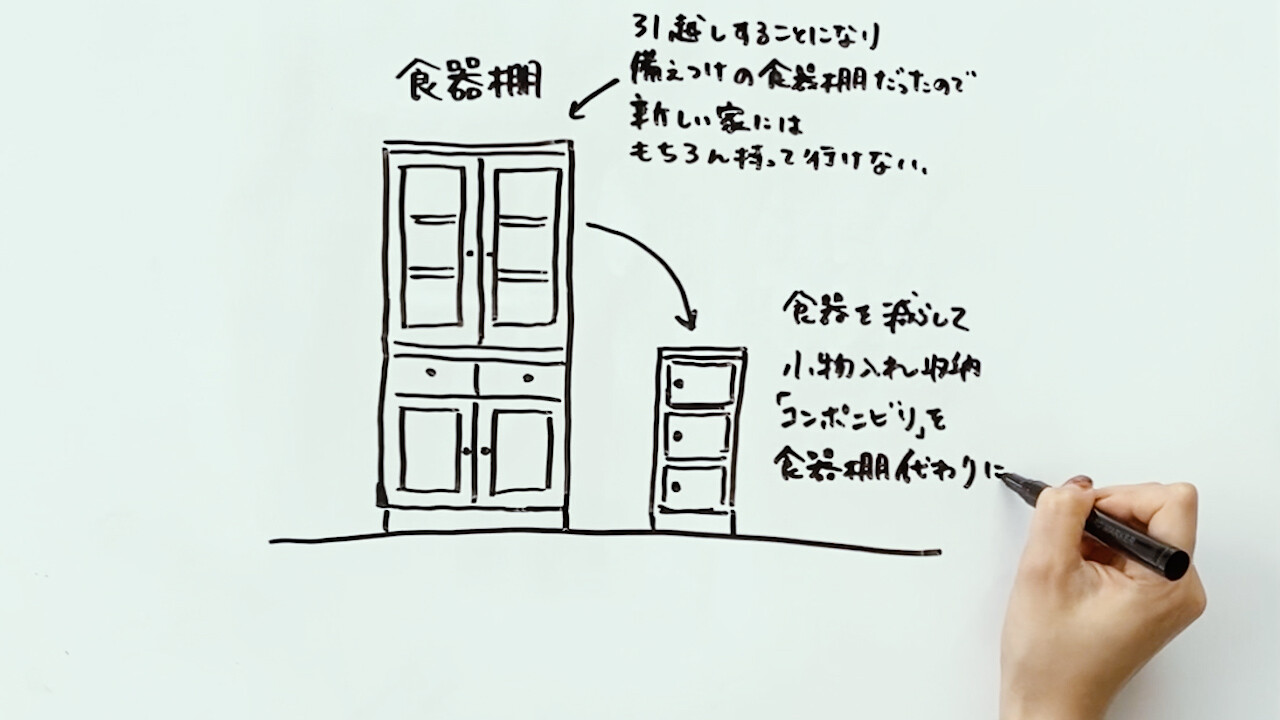 食器棚
引越しすることになり
備えつけの食器棚だったので
新しい家には
もちろん持って行けない、
食器を減らして
小物入れ収納
「コンポニビリ」を
食器棚代わりに